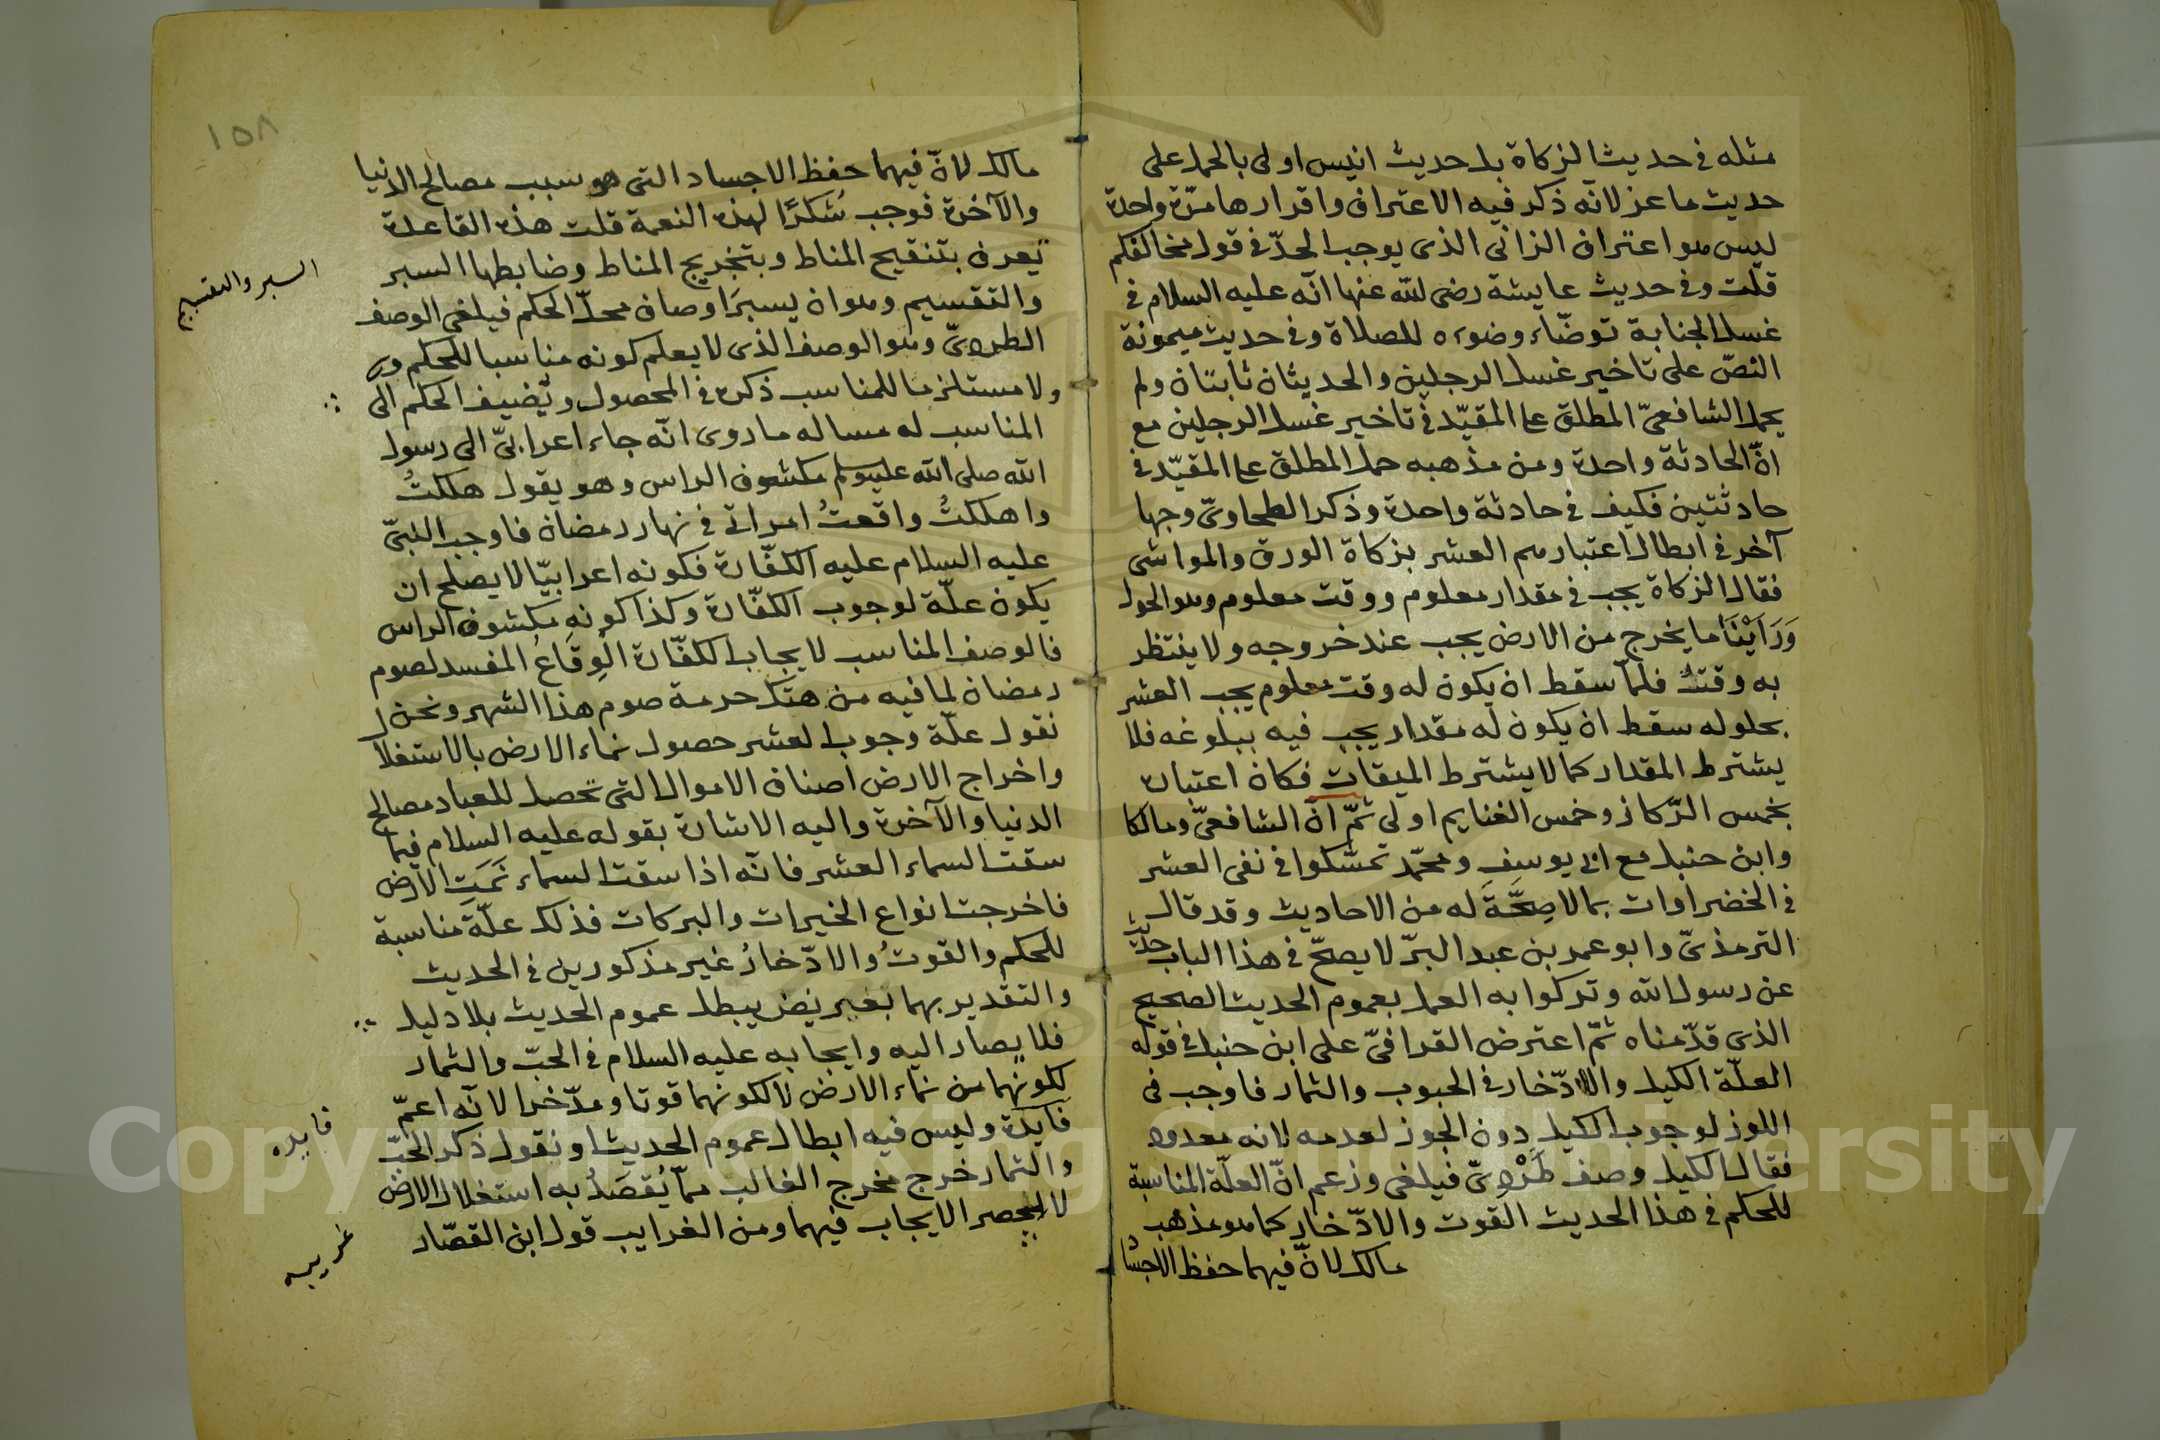 مثله فى حديث الزكاة بل حديث انيس اولى بالحمل على
حديث ماعز لانّه ذكر فيه الاعتراف واقرارها مرّة واحدة
ليس هو اعتراف الزانى الذى يوجب الحدّ فى قول مخالفكم
قلت وفى حديث عايشة رضى الله عنها انّه عليه السلام فى
غسل الجنابة توضّاء وضوءه للصلاة وفى حديث ميمونة
النصّ على تاخير غسل الرجلين والحديثان ثابتان ولم
يحمل الشافعىّ المطلق على المقيّد فى تاخير غسل الرجلين مع
انّ الحادثة واحدة ومن مذهبه حمل المطلق على المقيّد فى
حادثتين فكيف فى حادثة واحدة وذكر الطحاوىّ وجها
آخر فى ابطال اعتبارهم العشر بزكاة الورق والمواشى
فقال الزكاة يجب فى مقدار معلوم ووقت معلوم وهو الحول
وَرَايْنَا ما يخرج من الارض يجب عند خروجه ولا ينتظر
به وقتٌ فلمّا سقط ان يكون له وقت معلوم يجب العشر
بحلوله سقط ان يكون له مقدار يجب فيه ببلوغه فلا
يشترط المقدار كما لا يشترط الميقات فكان اعتباره
بخمس الرّكاز وخمس الغنايم اولى ثمّ انّ الشافعىّ ومالكا
وابن حنبل مع ابى يوسف ومحمّد تمسّكوا فى نفى العشر
فى الخضراوات بما لا صِحَّةَ له من الاحاديث وقد قال
الترمذىّ وابو عمر بن عبد البرّ لا يصحّ فى هذا الباب حديث
عن رسول الله وتركوا به العمل بعموم الحديث الصحيح
الذى قدّمناه ثمّ اعترض القرافىّ على ابن حنبل فى قوله
العلّة الكيل والادّخار فى الحبوب والثمار فاوجب فى
اللوز لوجوب الكيل دون الجوز لعدمه لانه معدود
فقال الكيل وصف طَرْدىّ فيلغى وزعم انّ العلّة المناسبة
للحكم فى هذا الحديث القوت والادّخار كما هو مذهب
مالك لانّ فيهما حفظ الاجساد
١٥٨
مالك لانّ فيهما حفظ الاجساد التى هو سبب مصالح الدنيا
والآخرة فوجب شُكرًا لهذه النعمة قلت هذه القاعدة
يعرف بتنقيح المناط وبتخريج المناط وضابطها السبر
السبر والتقسيم
والتقسيم وهو ان يسبرَ اوصاف محلّ الحكم فيلغى الوصف
الطردىّ وهو الوصف الذى لا يعلم كونه مناسبا للحكم
ولا مستلزما للمناسب ذكره فى المحصول ويُضيف الحكم الى
المناسب له مساله ما روى انّه جاء اعرابىّ الى رسول
الله صلى الله عليه وسلم مكشوف الراس وهو يقول هلكتُ
واهلكتُ واقعتُ امراتى فى نهار رمضان فاوجب النبىّ
عليه السلام عليه الكفّارة فكونه اعرابيّا لا يصلح ان
يكون علّة لوجوب الكفّارة وكذا كونه مكشوف الراس
فالوصف المناسب لايجاب الكفّارة الوِقَاعُ المفسد لصوم
رمضان لما فيه من هتك حرمة صوم هذا الشهر ونحن
نقول علّة وجوب العشر حصول نماء الارض بالاستغلال
واخراج الارض اصناف الاموال التى تحصل للعباد مصالح
الدنيا والآخرة واليه الاشارة بقوله عليه السلام فيما
سقت السماء العشر فانّه اذا سقت السماء نَمَتِ الارض
فاخرجت انواع الخيرات والبركات فذلك علّة مناسبة
للحكم والقوتُ والادّخارُ غير مذكورين فى الحديث
والتقدير بهما بغير نصّ يبطل عموم الحديث بلا دليل
فلا يصار اليه وايجابه عليه السلام فى الحبّ والثمار
لكونهما من نماء الارض لا لكونهما قوتا ومدّخرا لانّه اعمّ
فايدة وليس فيه ابطال عموم الحديث او نقول ذكر الحبّ
فايده
والثمار خرج مخرج الغالب ممّا يُقصَدُ به استغلال الارض
لا لحصر الايجاب فيهما ومن الغرايب قول ابن القصّار
غريبه
Copyright © King Saud University